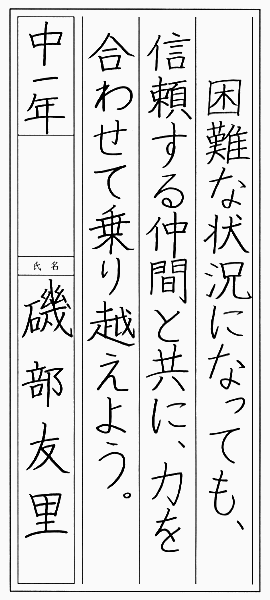 困難な状況になっても、
信頼する仲間と共に、力を
合わせて乗り越えよう。
中一年
氏名
磯部友里